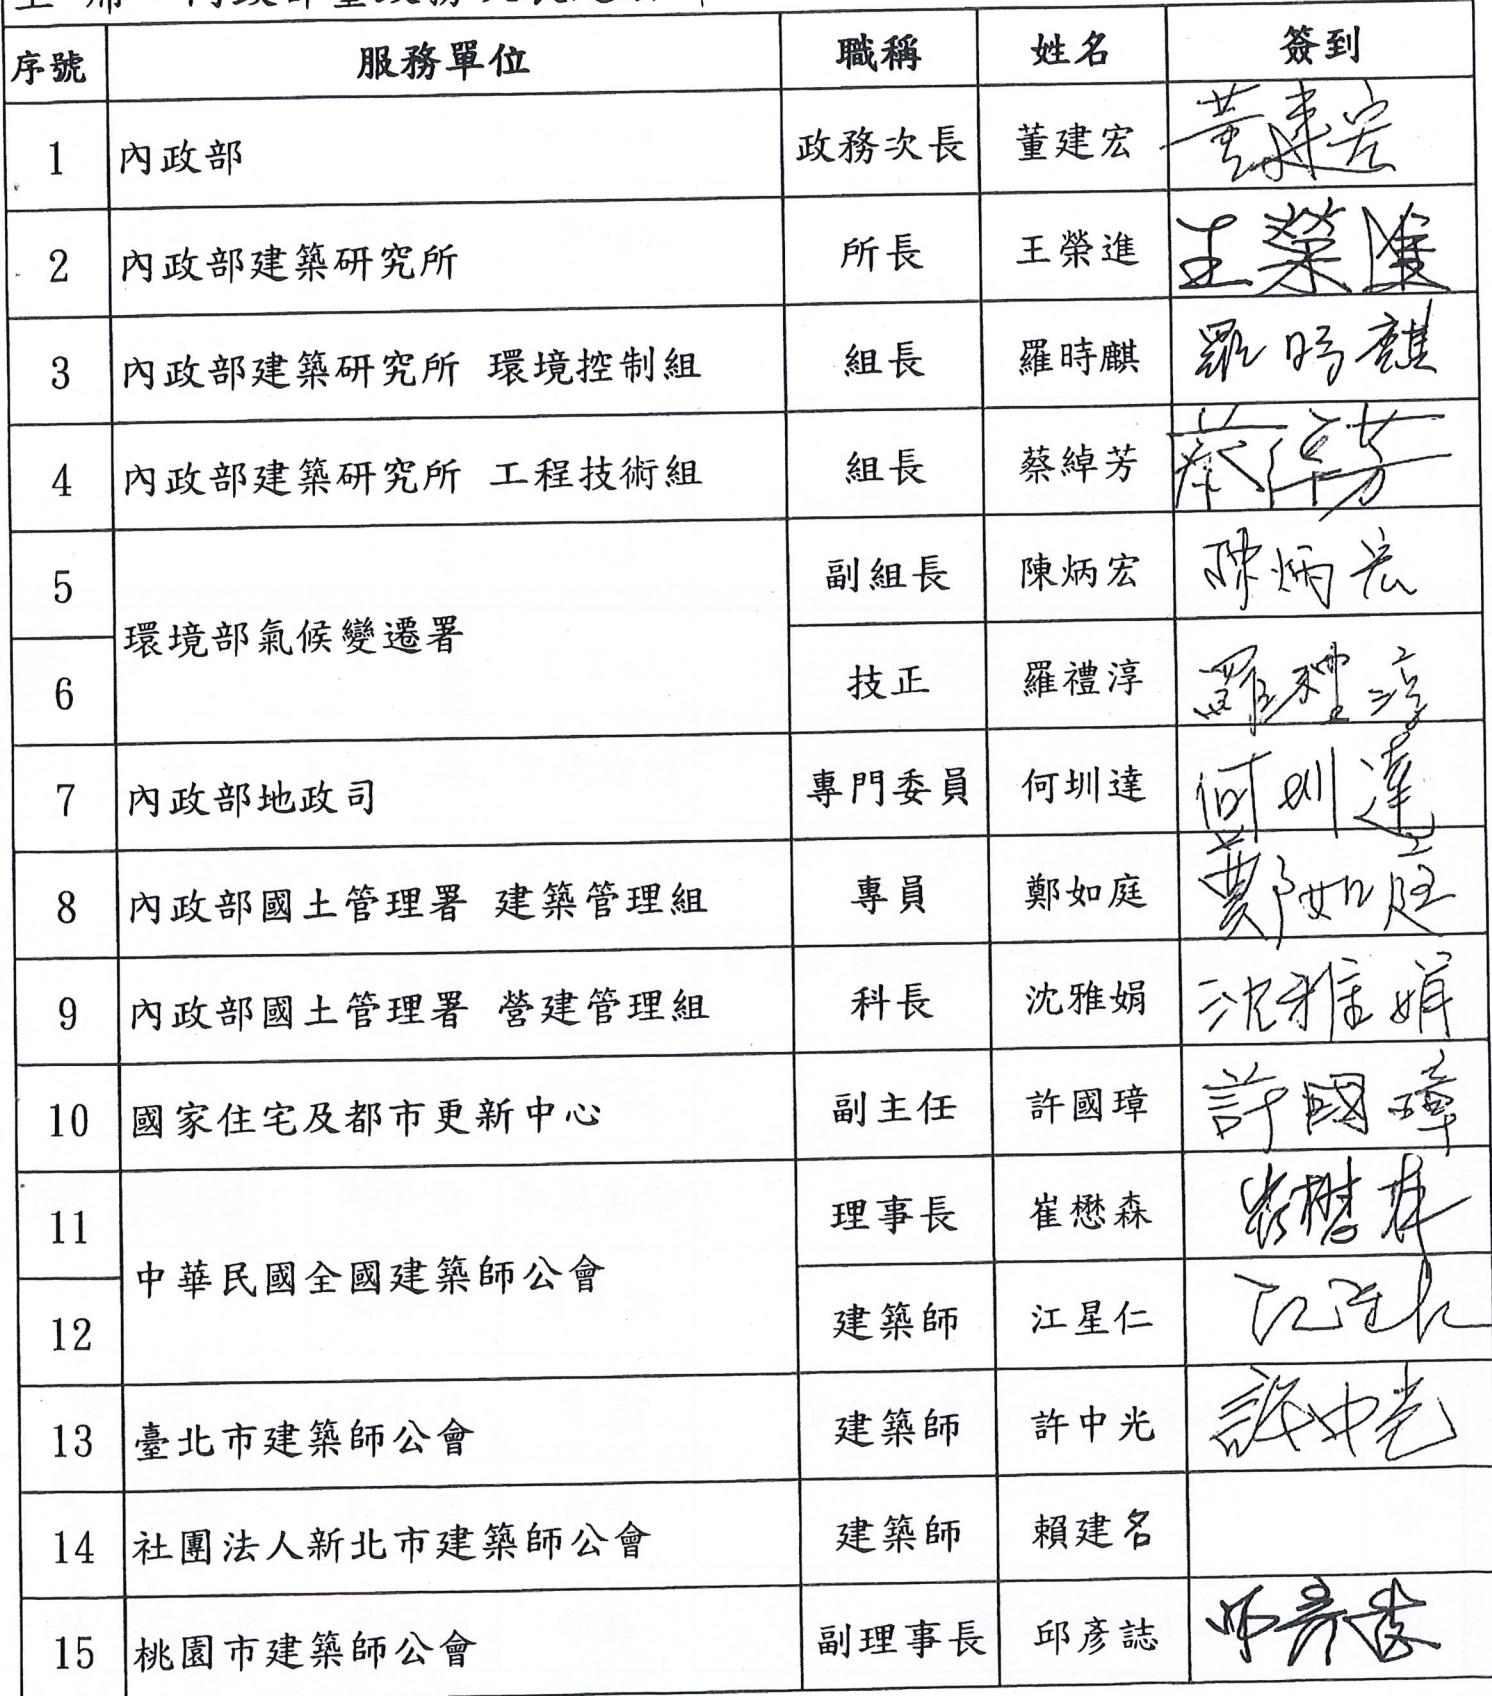 序號 服務單位 職稱 姓名 簽到
1 內政部 政務次長 董建宏 董建宏
2 內政部建築研究所 所長 王榮進 王榮進
3 內政部建築研究所 環境控制組 組長 羅時麒 羅時麒
4 內政部建築研究所 工程技術組 組長 蔡綽芳 蔡綽芳
5 環境部氣候變遷署 副組長 陳炳宏 陳炳宏
6 技正 羅禮淳 羅禮淳
7 內政部地政司 專門委員 何圳達 何圳達
8 內政部國土管理署 建築管理組 專員 鄭如庭 鄭如庭
9 內政部國土管理署 營建管理組 科長 沈雅娟 沈雅娟
10 國家住宅及都市更新中心 副主任 許國璋 許國璋
11 中華民國全國建築師公會 理事長 崔懋森 崔懋森
12 建築師 江星仁 江星仁
13 臺北市建築師公會 建築師 許中光 許中光
14 社團法人新北市建築師公會 建築師 賴建名
15 桃園市建築師公會 副理事長 邱彥誌